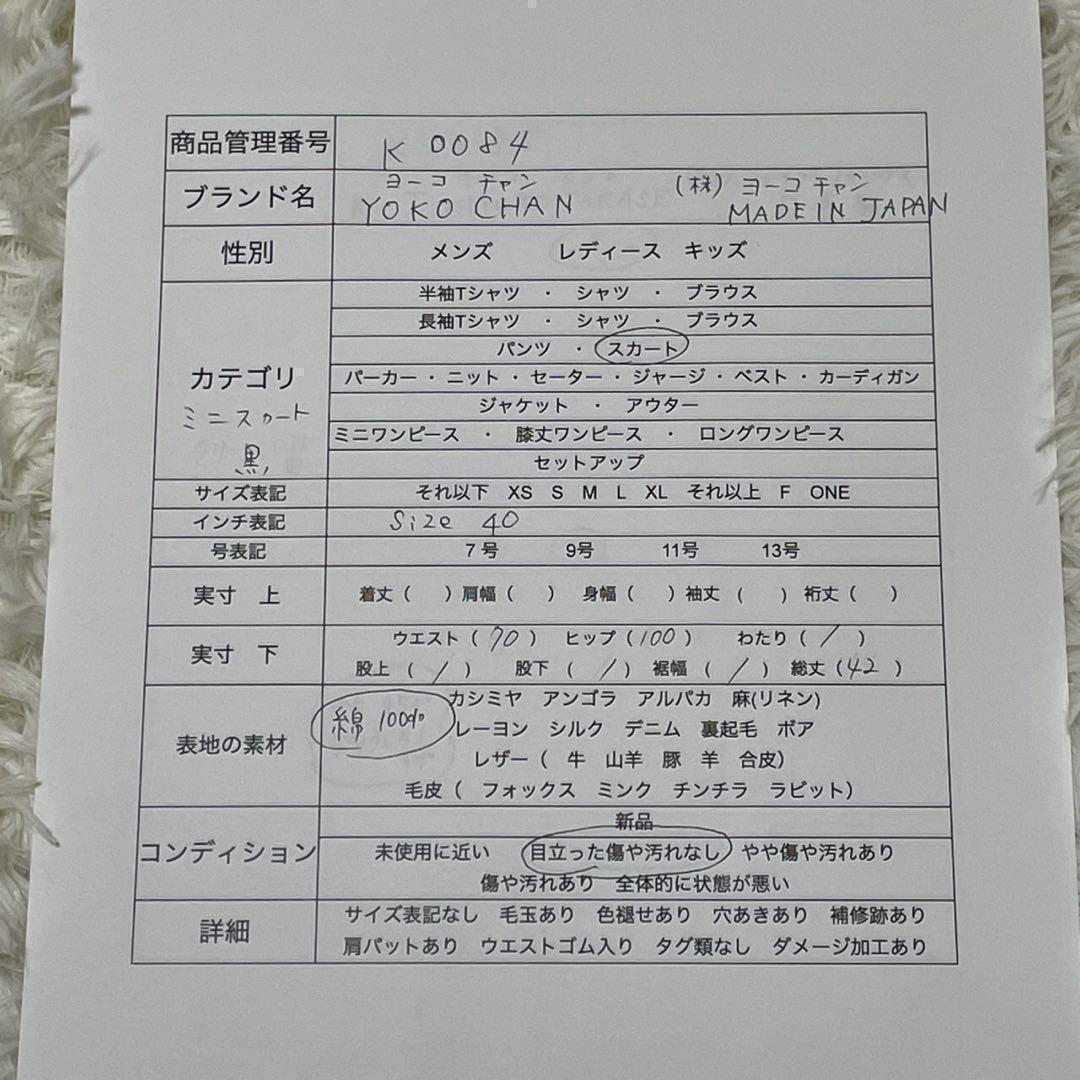 商品管理番号 K 0084
ヨーコ チャン (株) ヨーコ チャン
ブランド名 YOKO CHAN MADE IN JAPAN
性別 メンズ レディース キッズ
半袖Tシャツ ・ シャツ ・ ブラウス
長袖Tシャツ ・ シャツ ・ ブラウス
パンツ ・ スカート
カテゴリ パーカー・ニット・セーター・ジャージ・ベスト・カーディガン
ミニスカート ジャケット ・ アウター
ミニワンピース ・ 膝丈ワンピース ・ ロングワンピース
黒 セットアップ
サイズ表記 それ以下 XS S M L XL それ以上 F ONE
インチ表記 Size 40
号表記 7号 9号 11号 13号
実寸 上 着丈( ) 肩幅( ) 身幅( ) 袖丈( ) 裄丈( )
ウエスト(70) ヒップ(100) わたり(/)
実寸 下 股上(/) 股下(/) 裾幅(/) 総丈(42)
カシミヤ アンゴラ アルパカ 麻(リネン)
綿 100% レーヨン シルク デニム 裏起毛 ボア
表地の素材 レザー( 牛 山羊 豚 羊 合皮)
毛皮( フォックス ミンク チンチラ ラビット)
新品
コンディション 未使用に近い 目立った傷や汚れなし やや傷や汚れあり
傷や汚れあり 全体的に状態が悪い
詳細 サイズ表記なし 毛玉あり 色褪せあり 穴あきあり 補修跡あり
肩パットあり ウエストゴム入り タグ類なし ダメージ加工あり